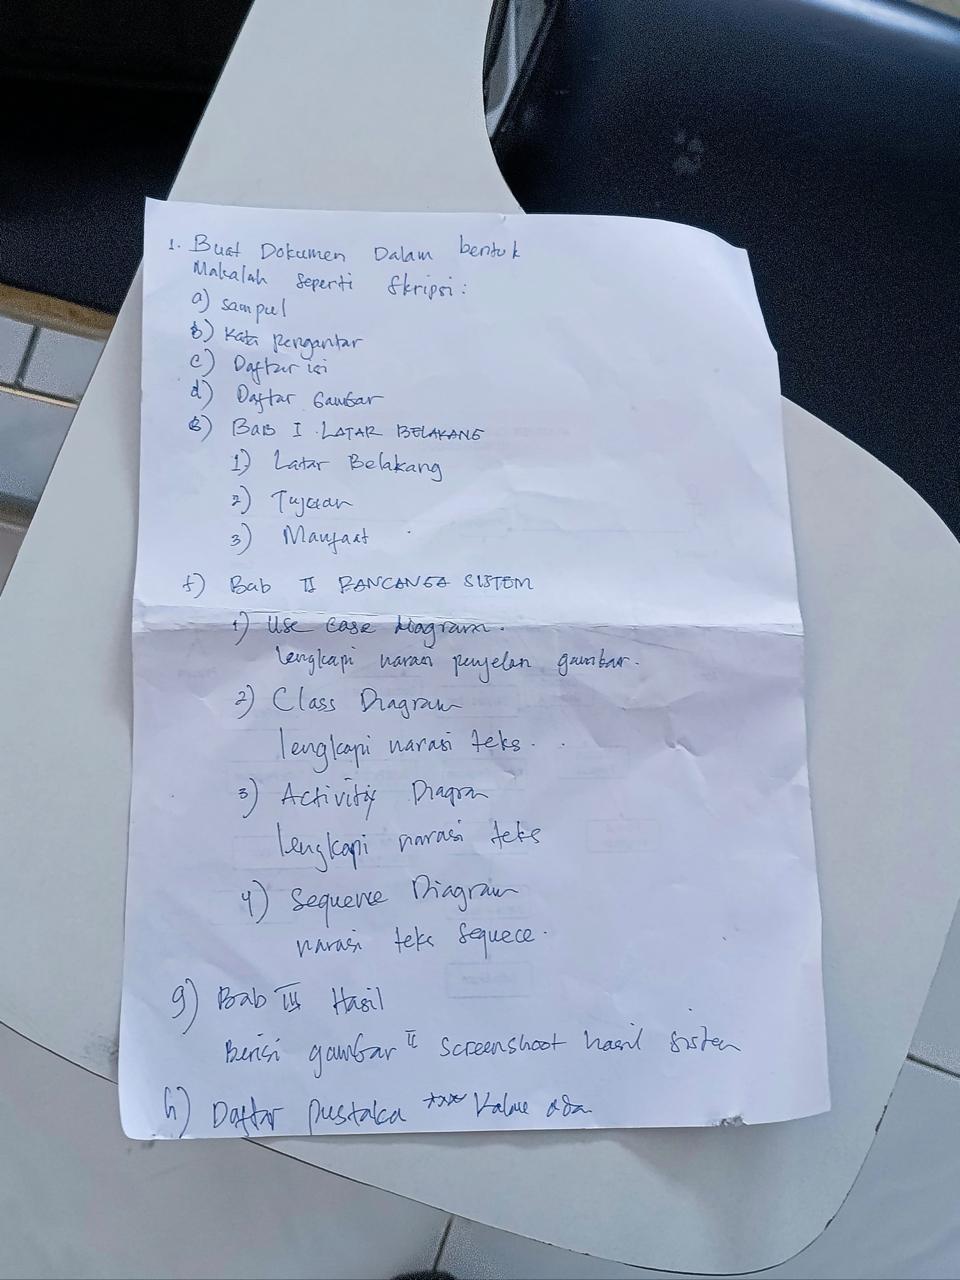 1. Buat Dokumen Dalam bentuk
Makalah seperti Skripsi:
a) sampul
b) Kata pengantar
c) Daftar isi
d) Daftar Gambar
e) Bab I LATAR BELAKANG
1) Latar Belakang
2) Tujuan
3) Manfaat
f) Bab II RANCANGA SISTEM
1) Use case Diagram.
lengkapi narasi penjelan gambar.
2) Class Diagram
lengkapi narasi teks.
3) Activity Diagram
lengkapi narasi teks
4) Sequence Diagram
narasi teks Sequece.
g) Bab III Hasil
Berisi gambar II screenshoot hasil sistem
h) Daftar pustaka *** Kalau ada